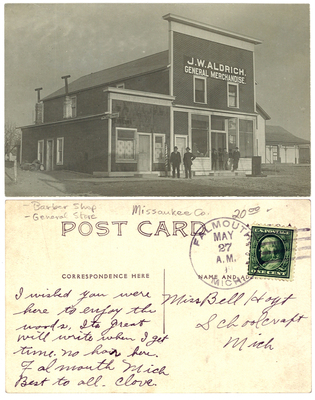 J.W. ALDRICH.
GENERAL MERCHANDISE.
- Barber Shop
- General Store
Missaukee Co.
20.00
POST CARD
CORRESPONDENCE HERE
NAME AND
FALMOUTH
MAY
27
A.M.
MICH.
U.S. POSTAGE
ONE CENT
I wished you were
here to enjoy the
woods. Its great
will write when I get
time. no here.
Falmouth Mich
Best to all. Clove.
Miss Bell Hoyt
Schoolcraft
Mich